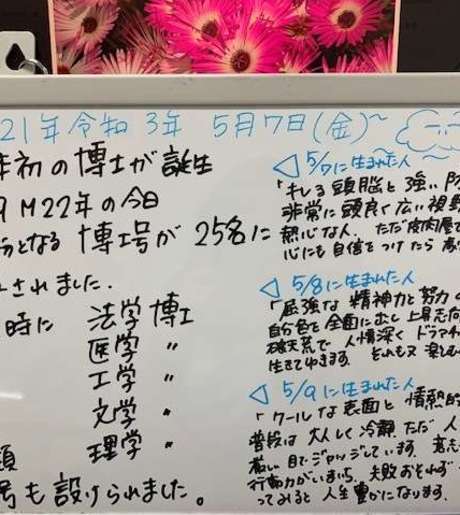 21年令和3年 5月7日(金)~
年初の博士が誕生
9 M22年の今日
となる博士号が25名に
されました.
時に 法学博士
医学 〃
工学 〃
文学 〃
理学 〃
号も設けられました。
◁ 5/7に生まれた人
「キレる頭脳と強い防
非常に頭良く広い視野
熱心な人。ただ皮肉屋で
心にも自信をつけたら
◁ 5/8に生まれた人
「屈強な精神力と努力の
自分色を全面にむし上昇志向
破天荒で人情深くドラマチ
生きてゆきます。それも又楽む
◁ 5/9に生まれた人
「クールな表面と情熱的
普段は大人しく冷静 ただ人
厳い目でジャッジしています。
行動力がいまいち。失敗おそれず
ってみると人生豊かになります。